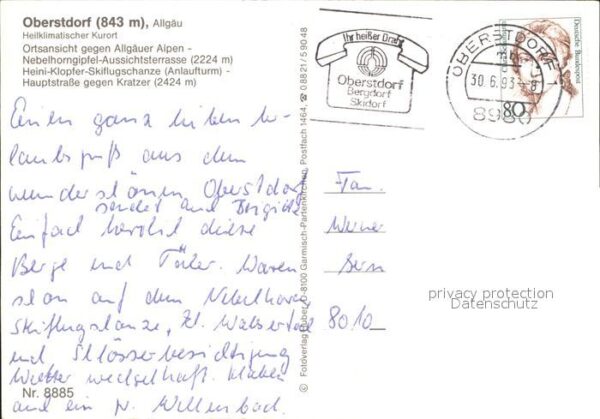 Oberstdorf (843 m), Allgäu
Heilklimatischer Kurort
Ortsansicht gegen Allgäuer Alpen -
Nebelhorngipfel-Aussichtsterrasse (2224 m)
Heini-Klopfer-Skiflugschanze (Anlaufturm) -
Hauptstraße gegen Kratzer (2424 m)
Einen ganz lieben Ur-
laubsgruß aus dem
wunderschönen Oberstdorf
sendet auch Brigitte
Einfach herrlich diese
Berge und Täler. Waren
schon auf dem Nebelhorn,
Skiflugschanze, Kl. Walsertal
und Schlösserbesichtigung
Wetter wechselhaft. Haben
auch ein Wellenbad.
Nr. 8885
© Fotoverlag Huber, D-8100 Garmisch-Partenkirchen, Postfach 1464, ☎ 0 88 21 / 5 90 48
Ihr heißer Draht
Oberstdorf
Bergdorf
Skidorf
OBERSTDORF
30.6.93-8
8980
Deutsche Bundespost
80
Fam.
Werner
8010
privacy protection
Datenschutz